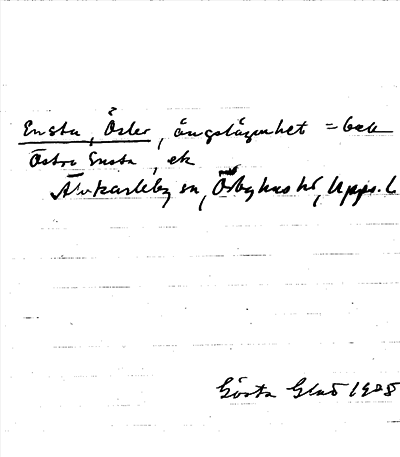 Ensta, Öster, ängslägenhet = bek
Östra Ensta, ek
Älvkarleby sn, Örbyhus hd, Upps. l.
Gösta Glad 1985